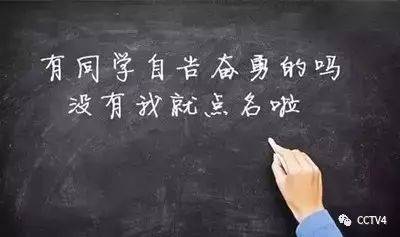 有同学自告奋勇的吗
没有我就点名啦
CCTV4